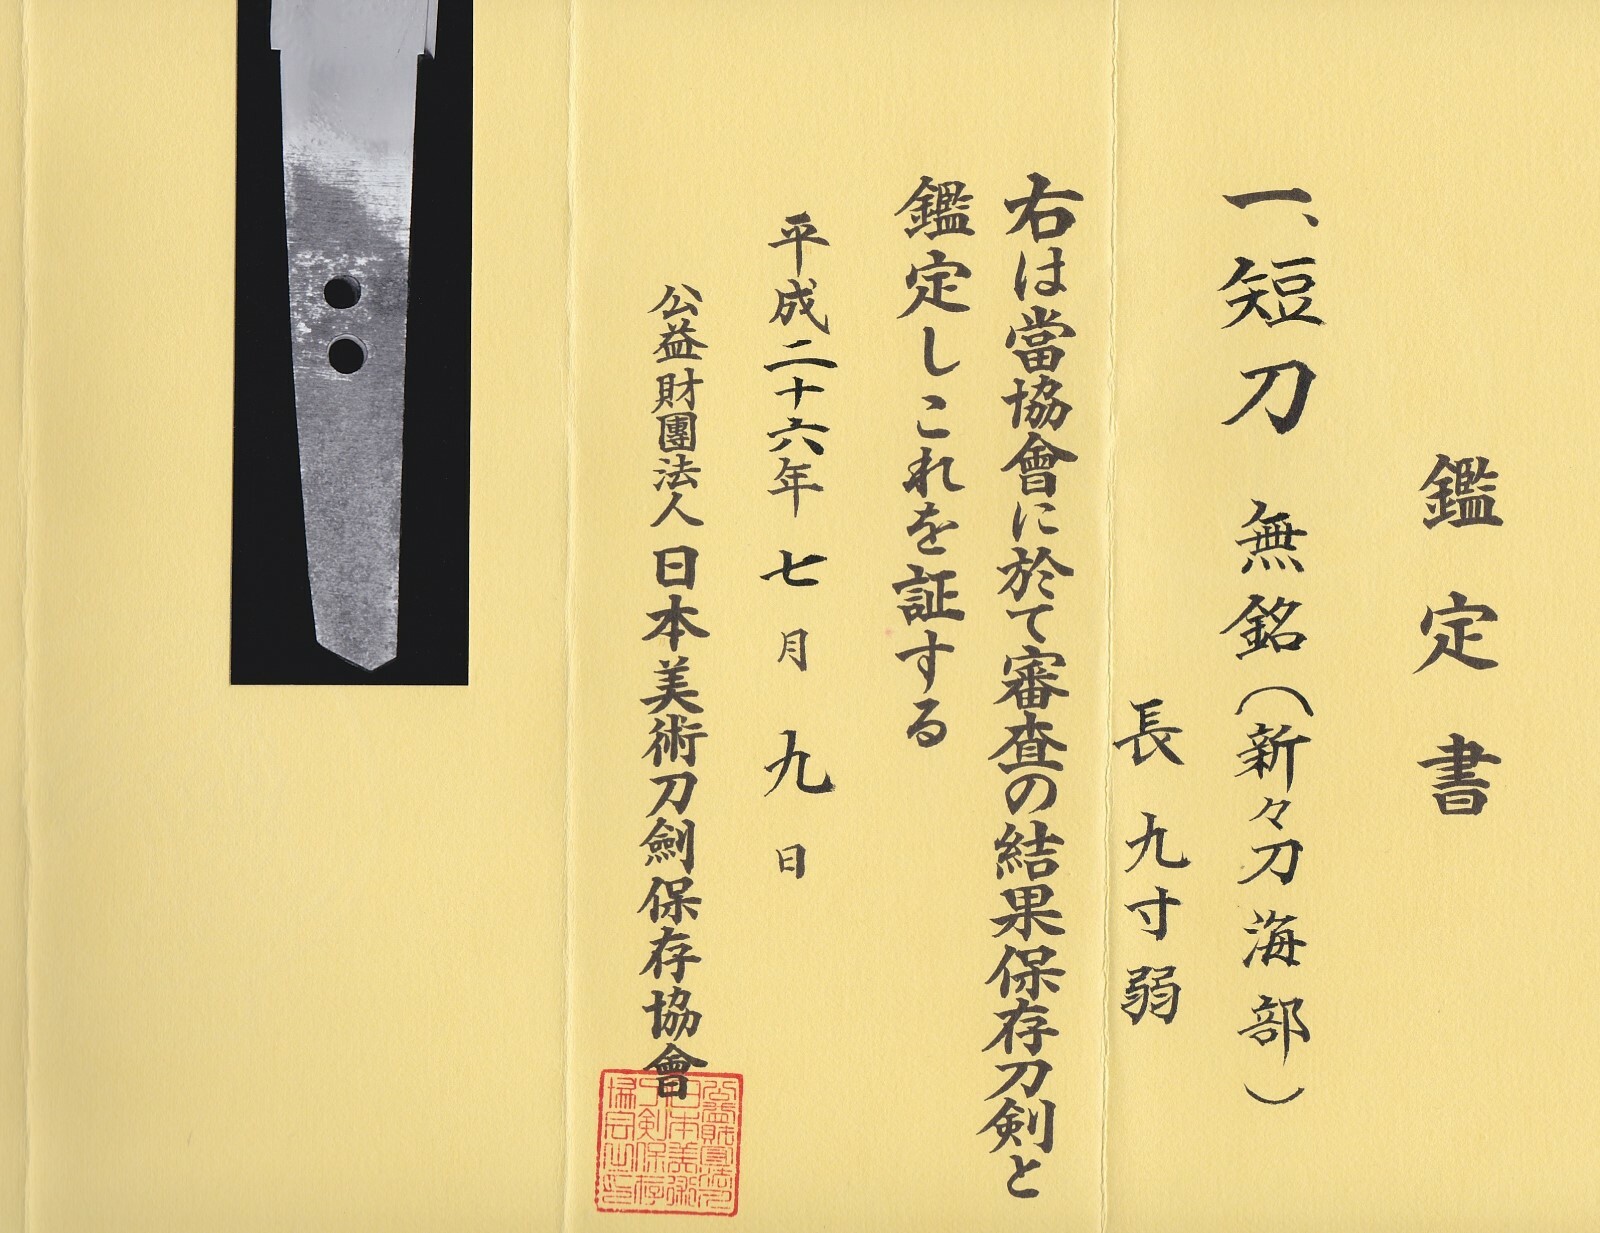 鑑定書
一、短刀 無銘(新々刀海部)
長 九寸弱
右は當協會に於て審査の結果保存刀剣と
鑑定しこれを証する
平成二十六年 七月 九日
公益財團法人 日本美術刀劍保存協會